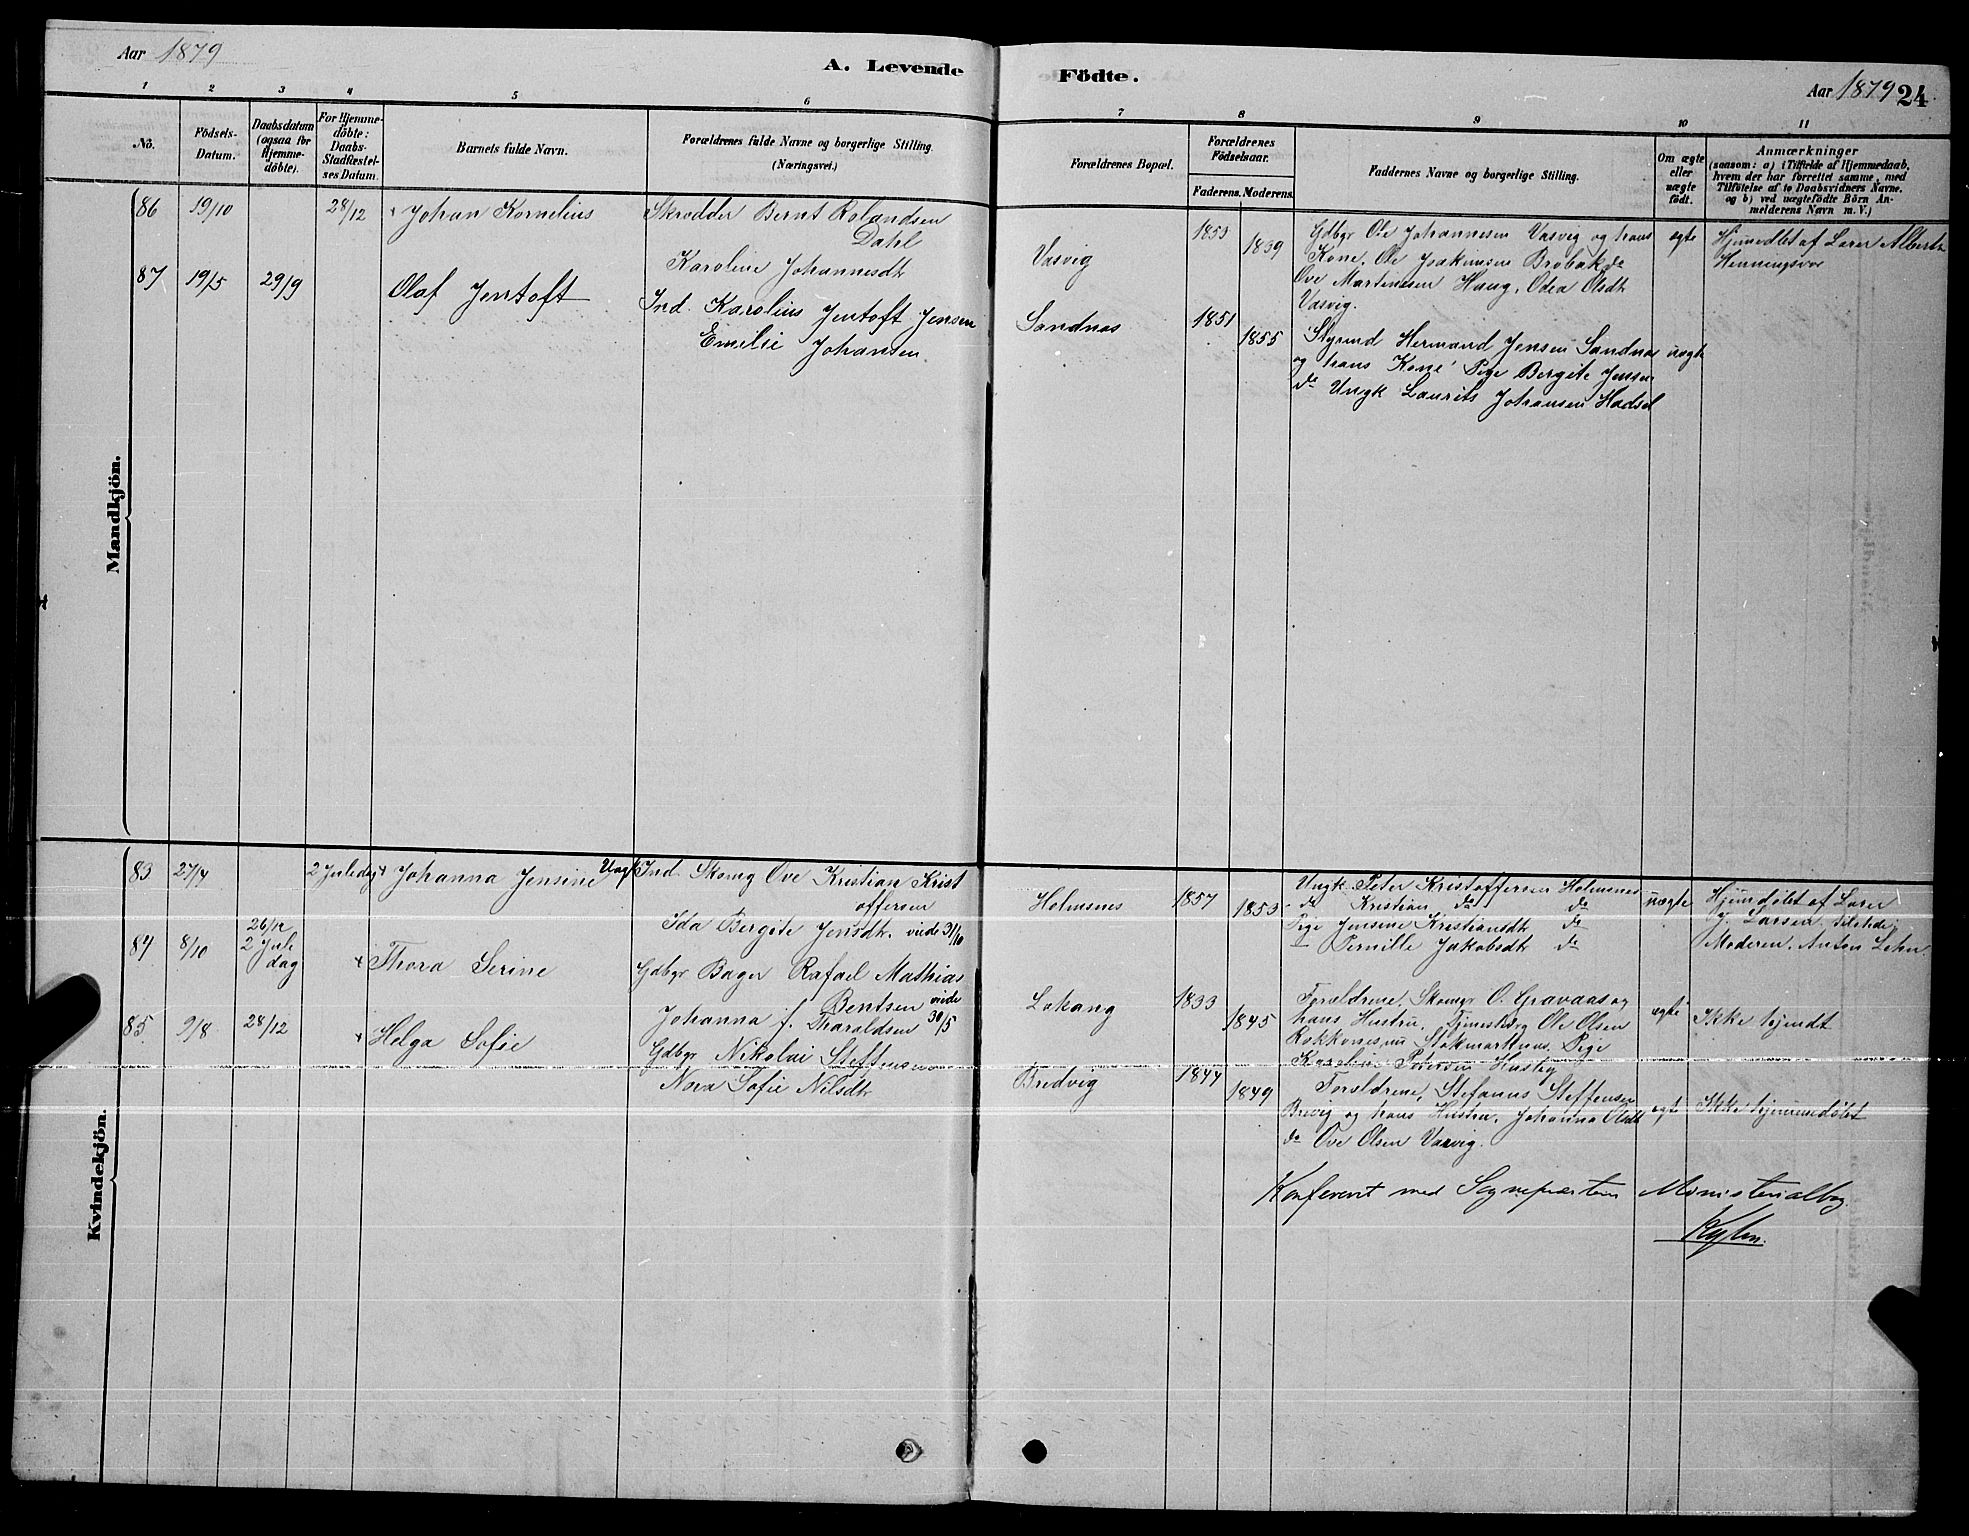 Aar 1879
A. Levende
Födte.
Aar 1879 24
1 2 3 4 5 6 7 8 9 10 11
No.
Födsels-Datum.
Daabsdatum (ogsaa for Hjemme-döbte).
For Hjemme-döbte: Daabs-Stadfæstel-ses Datum.
Barnets fulde Navn.
Forældrenes fulde Navne og borgerlige Stilling. (Næringsvei.)
Forældrenes Bopæl.
Forældrenes Födselsaar.
Faderens. Moderens.
Faddernes Navne og borgerlige Stilling.
Om ægte eller uægte født.
Anmærkninger
(saasom: a) i Tilfælde af Hjemmedaab,
hvem der har forrettet samme, med
Tilföielse af to Daabsvidners Navne.
og b) ved uægtefödte Börn An-
melderens Navn m. V.)
Mandkjön.
86 19/10 28/12 Johan Kornelius
Skrædder Bernt Rolandsen
Dahl
Karoline Johannesdt
Vasvig
1853
1839
Gdbgr Ole Johannesen Vasvig og hans
Kone, Ole Joakimsen Brobak do
Ove Martinesen Haug, Odea Olsdt
Vasvig.
ægte
Hjemdbt af Lærer Alberts
Henningsvær
87 19/5 29/9
Olaf Jentoft
Ind. Karolius Jentoft Jensen
Emelie Johansen.
Sandnæs
1851
1855
Styrmd Hermand Jensen Sandnæs
og hans Kone, Pige Bergite Jensen
do Ungk Laurits Johansen Hadsel
uægte
Kvindekjön.
83 27/4 2 Juledag Johanna Jensine
Ungk Ind. Skomg Ove Kristian Krist
offersen
Ida Bergite Jensdt. viede 31/10
Holmsnes
1857
1853
Ungk Peter Kristoffersen Holmsnes
do Kristian do do
Pige Jensine Kristiansdt do
" Pernille Jakobsdt do
uægte
Hjemdøbt af Lærer
J. Larsen, tilstede:
Moderen, Anton Lehn.
84 8/10
26/12
2 Jule
dag
Thora Serine
Gdbgr Bager Rafael Mathias
Bentsen viede
Johanna f. Tharaldsen 30/5
1833
1845
Forældrene, Skomgr O. Gravaas og
hans Hustru, Ole Olsen
Stokmarknæs, Pige
Petersen Husby
ægte
Ikke hjemdt
85. 9/8 28/12
Helga Sofie
Gdbgr Nikolai Steffensen
Nora Sofie Nilsdt
Bredvig
1844
1849
Forældrene, Stefanus Steffensen
Brevig og hans Hustru, Johanna Olsdt
do Ove Olsen Vasvig.
ægte
Ikke hjemmedøbt
Konfereret med Sognepræstens Ministerialbog